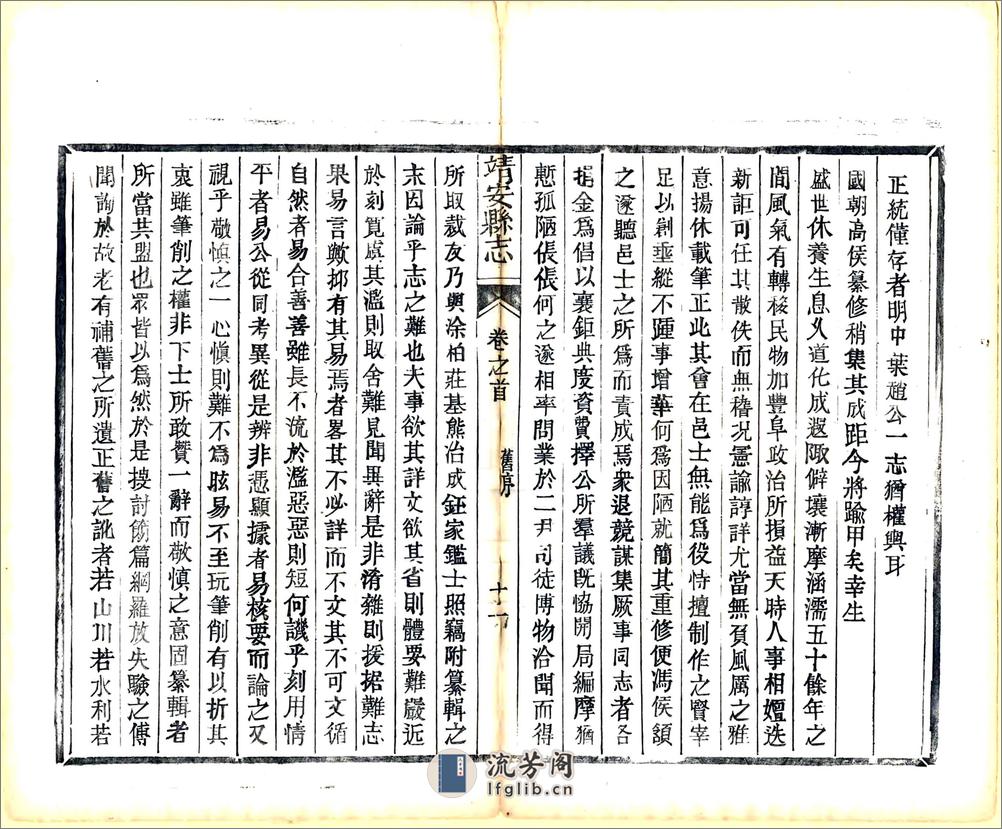 正統僅存者明中葉趙公一志猶權輿耳
國朝高侯纂修稍集其成距今將踰甲矣幸生
盛世休養生息久道化成遐陬僻壤漸摩涵濡五十餘年之
間風氣有轉移民物加豐阜政治所損益天時人事相嬗迭
新詎可任其散佚而無稽况憲諭諄詳尤當無負風厲之雅
意揚休載筆正此其會在邑士無能爲役恃擅制作之賢宰
足以創垂縱不踵事增華何爲因陋就簡其重修便馮侯頷
之遂聽邑士之所爲而責成焉衆退競謀集厥事同志者各
捐金爲倡以襄鉅典度資費擇公所羣議旣恊開局編摩猶
慙孤陋倀倀何之遂相率問業於二尹司徒博物洽聞而得
靖安縣志
卷之首
舊序
十一
所取裁友乃與涂柏莊基熊治成鉦家鑑士照竊附纂輯之
末因論乎志之難也夫事欲其詳文欲其省則體要難嚴近
於刻覓虞其濫則取舍難見聞異辭是非淆雜則援据難志
果易言歟抑有其易焉者畧其不必詳而不文其不可文循
自然者易合善善雖長不流於濫惡惡則短何譏乎刻用情
平者易公從同考異從是辨非憑顯據者易核要而論之又
視乎敬慎之一心慎則難不爲眩易不至玩筆削有以折其
衷雖筆削之權非下士所敢贊一辭而敬慎之意固纂輯者
所當共盟也衆皆以爲然於是搜討篋篇網羅放失驗之傳
聞詢於故老有補舊之所遺正舊之訛者若山川若水利若
流芳阁
lfglib.cn